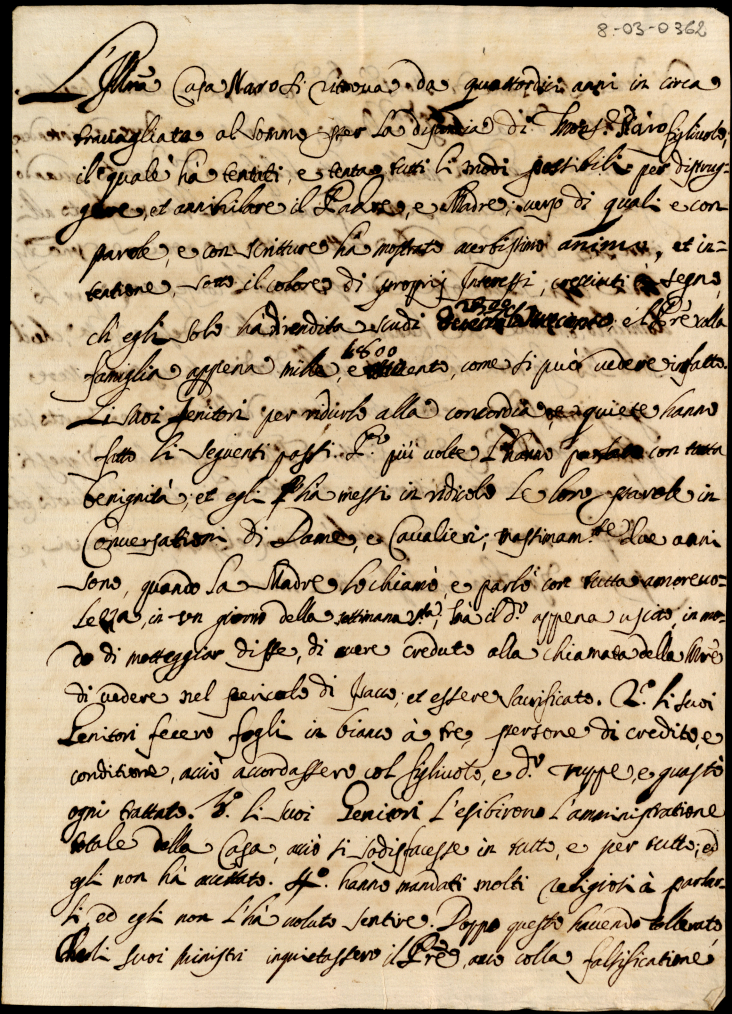 8-03-0362
L'Illma Casa Naro si ritrova da quattordici anni in circa
travagliata al sommo per la discordia di Monsr. Naro figliuolo,
il quale hà tentati, e tenta tutti li modi possibili per distrug-
gere, et annihilare il Padre, e Madre; verso di quali e con
parole, e con scritture hà mostrato acerbissimo animo, et in-
tentione, sotto il colore di proprij Interessi, cresciuti à segno,
ch'egli solo hà di rendita scudi e il Prè colla
famiglia appena mille, e 1800 cento, come si può vedere in fatto.
Li suoi Genitori per ridurlo alla concordia, e quiete hanno
fatto li seguenti passi. Pro. più volte l'hanno parlato con tutta
benignità; et egli hà messi in ridicolo le loro parole in
Conversationi di Dame, e Cavalieri; massimamte. due anni
sono, quando la Madre lo chiamò, e parlò con tutta amorevo-
lezza, in un giorno della settimana sta., là il do. appena uscito, in mo-
do di motteggiar disse, di avere creduto alla chiamata della Mrè
di vedere nel pericolo di Isacco, et essere sacrificato. 2o. li suoi
Genitori fecero fogli in bianco à tre persone di credito, e
conditione, acciò accordassero col figliuolo, e do. ruppe, e guastò
ogni trattato. 3o. li suoi Genitori l'esibirono l'amministratione
totale della Casa, acciò si sodisfacesse in tutto, e per tutto; ed
egli non hà accettato. 4o. hanno mandati molti religiosi à parlar-
li, ed egli non l'hà voluto sentire. Doppo questo havendo tollerato
che li suoi Ministri inquietassero il Prè, anco colla falsificatione